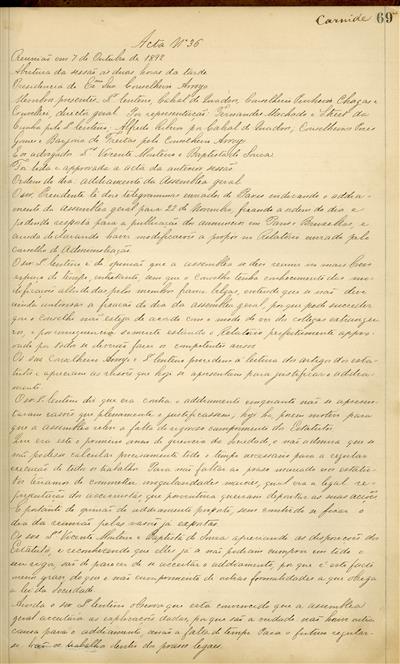 Carnide 69
Acta Nº 36
Reunião em 7 de Outubro de 1892
Abertura da sessão as duas horas da tarde
Presidencia do Exmo Snr Conselheiro Arroyo
Membros presentes, Sr. Centeno, Cabral de Quadros, Conselheiro Pinheiro Chagas e
Conselhei, directa geral. Por representação Fernandes Machado e
Cunha pelo Sr Centeno, Alfredo Ribeiro por Cabral de Quadros, Conselheiros
e Barjona de Freitas pelo Conselheiro Arroyo
Os advogados Drs Vicente Monteiro e Baptista de Sousa
Foi lida e approvada a acta da anterior sessão
Ordem do dia, addiamento da Assemblea geral
O snr Presidente lê dois telegrammas enviados de Paris indicando o addia-
mento da assemblea geral para 22 de Novembro, fixando a ordem do dia e
pedindo resposta para a publicação dos annuncios em Paris e Bruxellas, e
ainda declarando haver modificações a propor no Relatorio enviado pelo
conselho de Administração.
O snr Sr Centeno é de opinião que a assemblea se deve reunir no mais breve
espaço de tempo, entretanto, sem que o Conselho tenha conhecimento das mo-
dificações alludidas pelo membro belga, entende que se não deve
ainda autorisar a fixação do dia da assemblea geral, porque pode succeder
que o Conselho não esteja de accordo com o modo de ver dos collegas estrangei-
ros, e por consequencia somente estando o Relatorio perfeitamente appro-
vado por todos se deverão fazer os competentes avisos
Os snrs Conselheiro Arroyo e Sr Centeno procedem á leitura dos artigos dos esta-
tutos e apreciam as rasões que hoje se apresentam para justificar o addia-
mento.
O snr Sr Centeno diz que era contra o addiamento emquanto não se apresen-
taram rasões que plenamente o justificassem; hoje ha, porem motivo para
que a assemblea releve a falta de rigoroso cumprimento do Estatuto.
Que era este o primeiro anno de gerencia da Sociedade, e não admira que se
não podesse calcular precisamente todo o tempo necessario para a regular
execução de todo o trabalho. Para não faltar ao prazo marcado nos estatu-
tos teriamos de commetter irregularidades maiores, qual era a legal re-
presentação dos accionistas que porventura queiram depositar as suas acções
É portanto de opinião do addiamento proposto, sem comtudo se fixar o
dia da reunião pelas rasões já expostas
Os snrs Drs Vicente Monteiro e Baptista de Sousa apreciando as disposições do
Estatuto, e reconhecendo que elles já se não podiam cumprir em todo o
seu rigor, são de parecer de se acceitar o addiamento, porque é este facto
menos grave do que o não cumprimento de outras formalidades a que obriga
a lei da Sociedade
Ainda o snr Sr Centeno observa que está convencido que a assemblea
geral acceitará as explicações dadas, porque são a verdade não houve outra
causa para o addiamento, senão a falta de tempo. Para o futuro regular-
se o trabalho dentro dos prazos legaes.